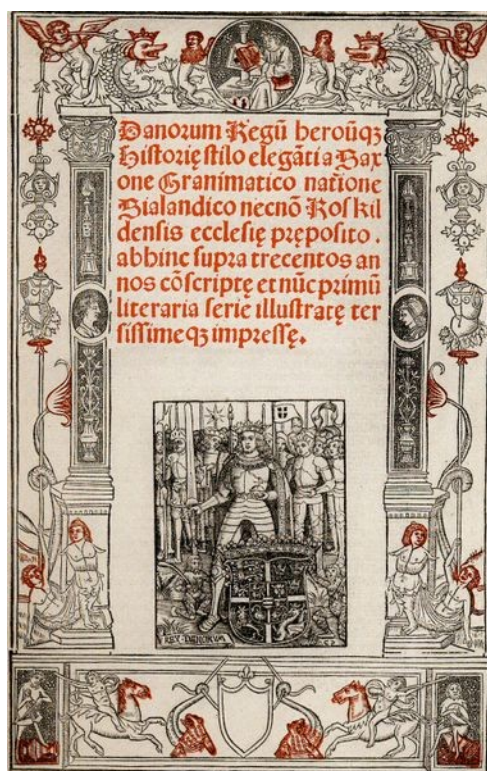 Danorum Regū heroūqꝫ
Historię stilo elegāti a Sax
one Grammatico natiōne
Sialandico necnō Roskil
densis ecclesię pręposito.
abhinc supra trecentos an
nos cōscriptę et nūc primū
literaria serie illustratę ter
sissimeqꝫ impressę.
REX DANORVM